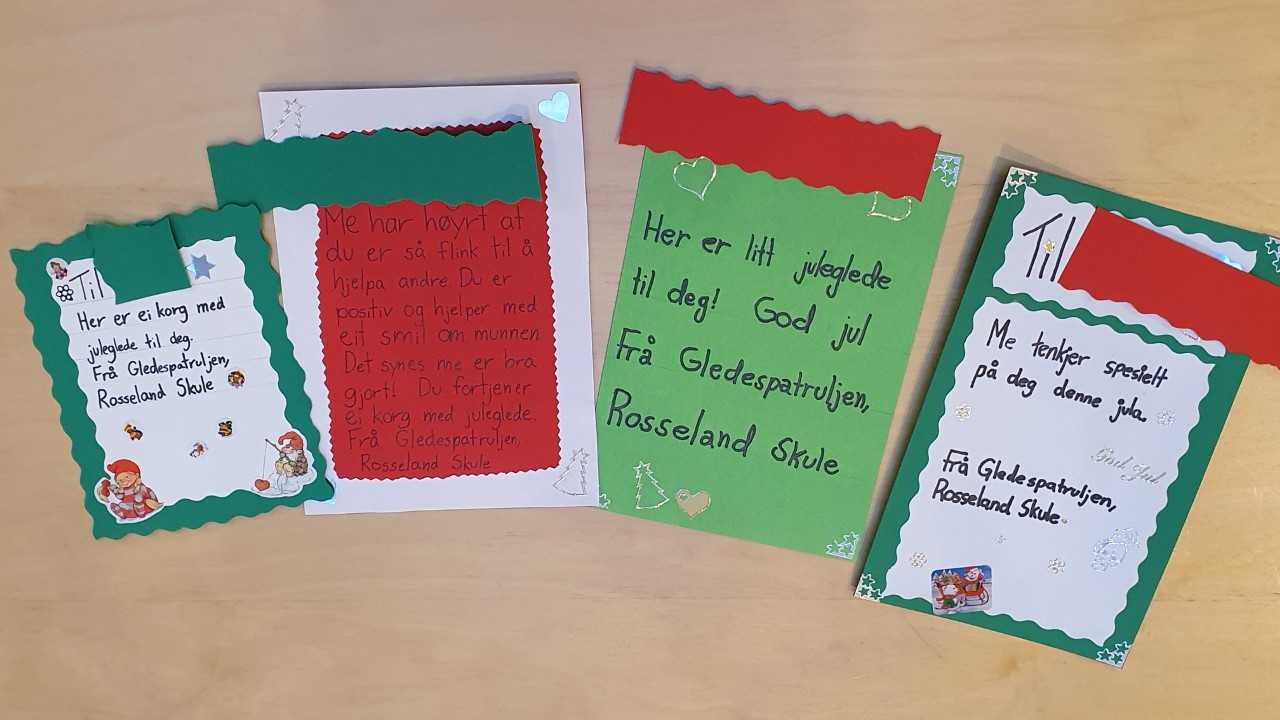 Til
Her er ei korg med
juleglede til deg.
Frå Gledespatruljen,
Rosseland Skule
Me har høyrt at
du er så flink til å
hjelpa andre. Du er
positiv og hjelper med
eit smil om munnen
Det synes me er bra
gjort! Du fortjener
ei korg med juleglede.
Frå Gledespatruljen,
Rosseland Skule
Her er litt juleglede
til deg! God jul
Frå Gledespatruljen,
Rosseland Skule
Til
Me tenkjer spesielt
på deg denne jula.
God Jul
Frå Gledespatruljen,
Rosseland Skule.